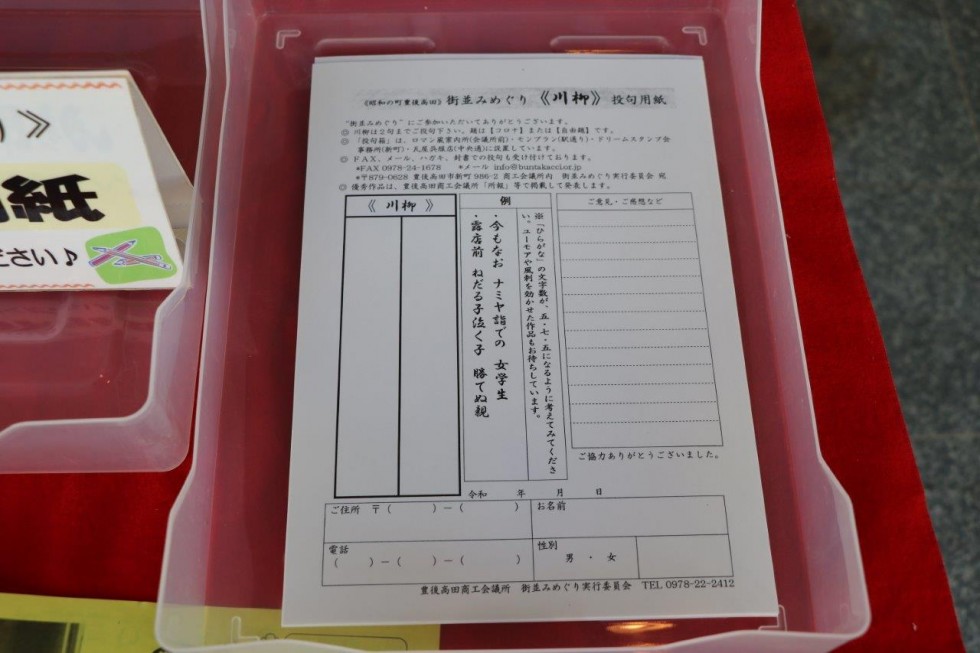 》
紙
ださい♪
《昭和の町豊後高田》 街並みめぐり 《川柳》 投句用紙
"街並みめぐり"にご参加いただいてありがとうございます。
◎ 川柳は2句までご投句下さい。題は【コロナ】または【自由題】です。
◎ 「投句箱」は、ロマン蔵案内所(会議所前)・モンブラン(駅通り)・ドリームスタンプ会
事務所(新町)・瓦屋呉服店(中央通)に設置しています。
◎ FAX、メール、ハガキ、封書での投句も受け付けております。
*FAX 0978-24-1678 *メール info@buntakacci.or.jp
*〒879-0628 豊後高田市新町986-2 商工会議所内 街並みめぐり実行委員会 宛
◎ 優秀作品は、豊後高田商工会議所「所報」等で掲載して発表します。
《 川柳 》
例
※「ひらがな」の文字数が、五・七・五になるように考えてみてくださ
い。ユーモアや風刺を効かせた作品もお待ちしています。
・今もなお ナミヤ詣での 女学生
・露店前 ねだる子泣く子 勝てぬ親
ご意見・ご感想など
ご協力ありがとうございました。
令和 年 月 日
ご住所 〒( )-( )
お名前
電話
( )-( )-( )
性別
男 ・ 女
豊後高田商工会議所 街並みめぐり実行委員会 TEL 0978-22-2412